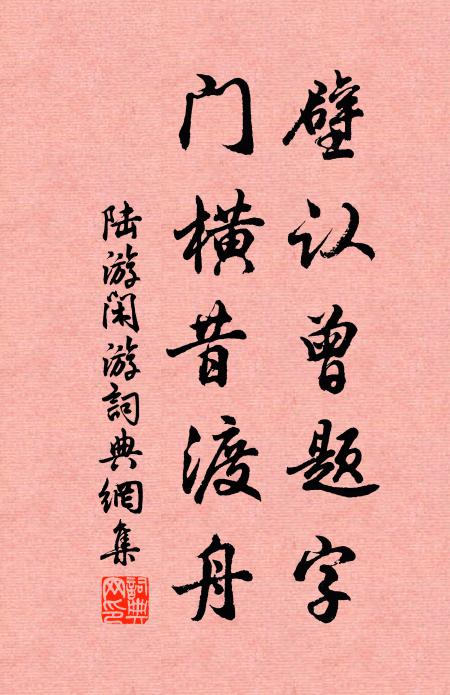 壁认曾题字
门横昔渡舟
陆游闲游詞典網集
詞典網印